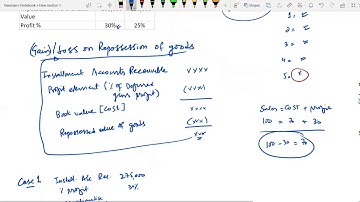 Neuman's Notebook » New Section 1
Value
Profit % 30% 25%
(Gain)/Loss on Repossession of goods
Installment Accounts Receivable xxxx
Profit element (% of Deferred gross profit) (xxx)
Book value [cost] xxx
Repossessed value of goods (xx)
xxx
1 =
2 =
3 =
4 =
5 = x
Sales = Cost + Profit
100 = 70 + 30
100 - 30 = 70
Case 1 Install. A/c Rec. 275,000
% Profit 30%